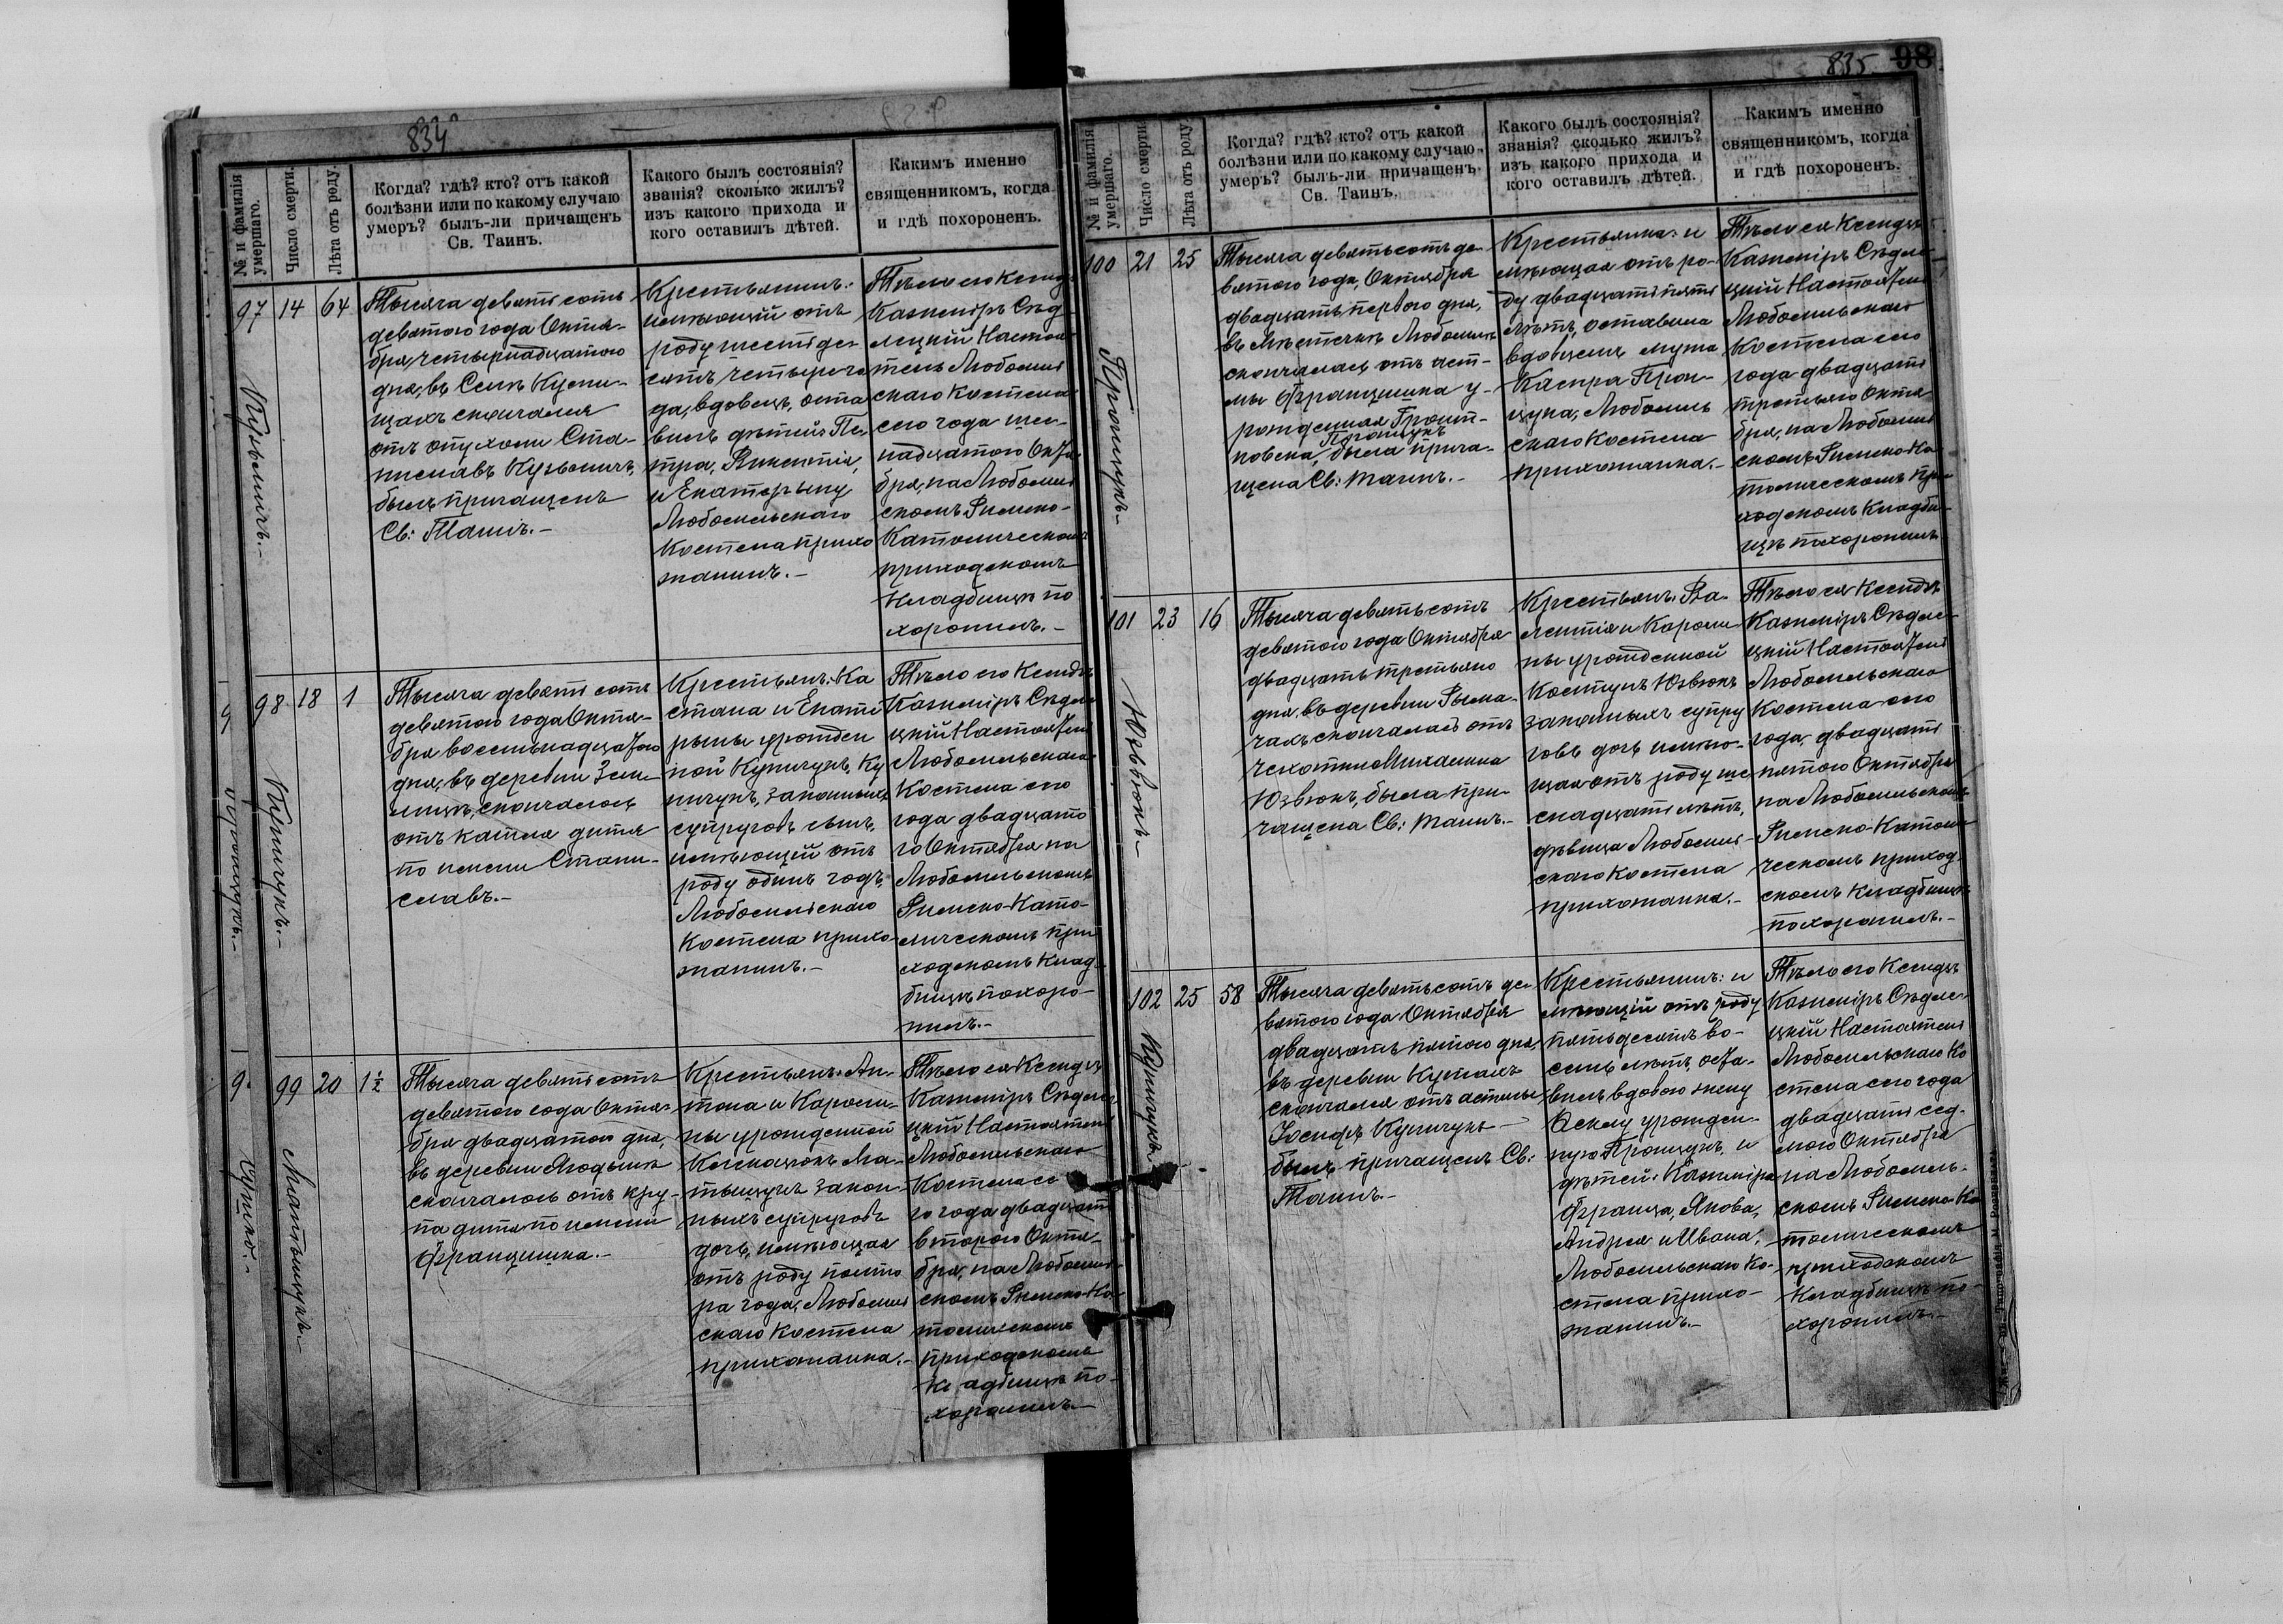 834
№ и фамилія умершаго.
Число смерти.
Лѣта отъ роду.
Когда? гдѣ? кто? отъ какой
болѣзни или по какому случаю
умеръ? былъ-ли причащенъ
Св. Таинъ.
Какого былъ состоянія?
званія? сколько жилъ?
изъ какого прихода и
кого оставилъ дѣтей.
Каким именно
священникомъ, когда
и гдѣ похороненъ.
97
14
64
Тысяча девятьсотъ
девятого года Октя-
бря, четырнадцатого
дня, въ Селѣ Кусни-
щахъ скончался
отъ опухоли Ста-
ниславъ Кузьмичъ,
былъ причащенъ
Св: Таинъ.-
Крестьянинъ:
имѣющій отъ
роду шестьде-
сятъ четыре го
да, вдовецъ, оста
вилъ дѣтей: Пе-
тра, Викентія,
и Екатерыну
Любомльскаго
Костела прихо
жанинъ.-
Тѣло его Ксендз
Казимiръ Сѣд
лецкій Настоя
тель Любомль
скаго Костела
сего года шес-
надцатого Октя
бря, на Любомль
скомъ Римско-
Католическомъ
приходскомъ
Кладбищѣ по
хоронилъ.-
98
18
1
Купичукъ.-
Тысяча девятьсотъ
девятого года Октя-
бря восемьнадцатого
дня, въ деревни Зем-
лицѣ, скончалось
отъ кашля дитя
по имени Стани-
славъ.-
Крестьянъ: Ка
етана и Екате
рыны урожден
ной Купичукъ, Ку
пичукъ, законныхъ
супруговъ сынъ,
имѣющій отъ
роду одинъ годъ,
Любомльскаго
Костела прихо-
жанинъ.-
Тѣло его Ксендзъ
Казимiръ Сѣдле
цкій Настоятель
Любомльскаго
Костела сего
года двадцато
го Октября на
Любомльскомъ
Римско-Като-
лическомъ при
ходскомъ Клад-
бищѣ похоро-
нилъ.-
9
99
20
1½
Тысяча девятьсотъ
девятого года Октя-
бря двадцатого дня,
въ деревни
скончалось отъ кру-
па дитя по имени
Францишка.-
Крестьянъ: Ан-
тона и Кароли-
ны урожденной
законъ-
ныхъ супруговъ
дочь, имѣющая
отъ роду полто
ра года, Любомль
скаго Костела
прихожанка.-
Тѣло ея Ксендзъ
Казимiръ Сѣдле
цкій Настоятель
Любомльскаго
Костела се
го года двадцать
второго Октя-
бря, на Любомль-
скомъ Римско-Ка-
толическомъ
приходскомъ
Кладбищѣ по-
хоронилъ.-
835 98
№ и фамилія умершаго.
Число смерти.
Лѣта отъ роду.
Когда? гдѣ? кто? отъ какой
болѣзни или по какому случаю
умеръ? былъ-ли причащенъ
Св. Таинъ.
Какого былъ состоянія?
званія? сколько жилъ?
изъ какого прихода и
кого оставилъ дѣтей.
Каким именно
священникомъ, когда
и гдѣ похороненъ.
100
21
25
Процукъ.-
Тысяча девятьсотъ де-
вятого года, Октября
двадцать первого дня,
въ Мѣстечкѣ Любомль
скончалась отъ аст-
мы Францишка у-
рожденная
Процукъ
была прича-
щена Св: Таинъ.-
Крестьянка: и
мѣющая отъ ро-
ду двадцать пять
лѣтъ, оставила
вдовцемъ мужа
Каспра Про-
цука, Любомль
скаго Костела
прихожанка.-
Тѣло ея Ксендзъ
Казимiръ Сѣдле-
цкій Настоятель
Любомльскаго
Костела сего
года двадцать
третьяго Октя
бря, на Любомль
скомъ Римско-Ка
толическомъ при
ходскомъ Кладби-
щѣ похоронилъ
101
23
16
Юзвюкъ-
Тысяча девятьсотъ
девятого года Октября
двадцать третьяго
дня, въ деревни Рыма-
чахъ скончалась отъ
чехотки Михалина
Юзвюкъ, была при-
чащена Св: Таинъ.-
Крестьянъ: Ва-
лентія и Кароли
ны урожденной
Костукъ Юзвюкъ
законныхъ супру
говъ дочь имѣю-
щая отъ роду ше
снадцать лѣтъ,
дѣвица Любомль-
скаго Костела
прихожанка.-
Тѣло ея Ксендзъ
Казимiръ Сѣдле-
цкій Настоятель
Любомльскаго
Костела сего
года, двадцать
пятого Октября
на Любомльскомъ
Римско-Католи
ческомъ приход-
скомъ Кладбищѣ
похоронилъ.-
102
25
58
Купичукъ.-
Тысяча девятьсотъ де-
вятого года Октября
двадцать пятого дня,
въ деревни
скончался отъ астмы
Іосифъ Купичукъ -
былъ причащенъ Св:
Таинъ.-
Крестьянинъ: и
мѣющій отъ роду
пятьдесятъ во-
семь лѣтъ, оста-
вилъ вдовою жену
урожден-
ную Процукъ, и
дѣтей: Казимiра
Франца, Якова,
Андрея и Ивана,
Любомльскаго Ко-
стела прихо-
жанинъ.-
Тѣло его Ксендзъ
Казимiръ Сѣдле-
цкій Настоятель
Любомльскаго Ко
стела сего года
двадцать сед-
мого Октября
на Любомль-
скомъ Римско-Ка
толическомъ
приходскомъ
Кладбищѣ по-
хоронилъ.-